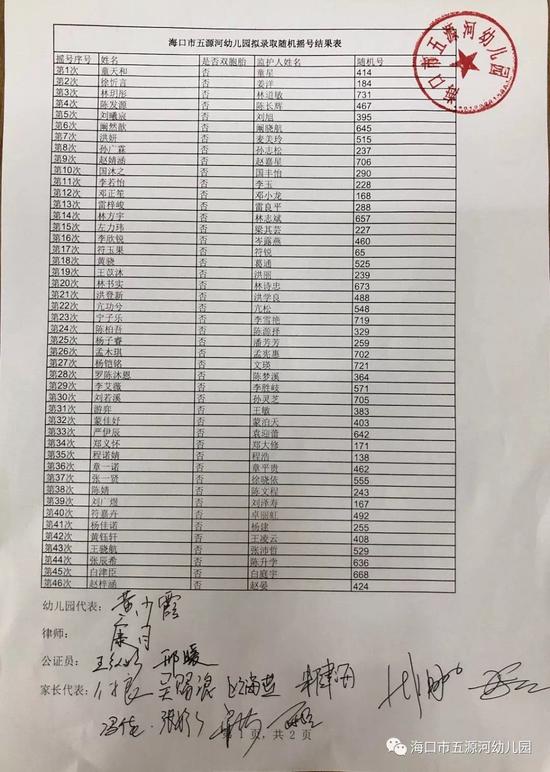 海口市五源河幼儿园拟录取随机摇号结果表
海口市五源河幼儿园
摇号序号 姓名 是否双胞胎 监护人姓名 随机号
第1次 童天和 否 童星 414
第2次 徐忻言 否 姜洋 184
第3次 林玥彤 否 林道敏 731
第4次 陈发源 否 陈长辉 467
第5次 刘曦宸 否 刘旭 395
第6次 阚然歆 否 阚晓航 645
第7次 洪妍 否 麦美玲 515
第8次 孙广霖 否 孙志松 237
第9次 赵婧涵 否 赵嘉星 706
第10次 国沐之 否 国丰怡 290
第11次 李若怡 否 李玉 228
第12次 邓正笙 否 邓小龙 168
第13次 雷梓峻 否 雷良平 288
第14次 林方宇 否 林志斌 657
第15次 左力玮 否 梁其芸 227
第16次 李欣锐 否 岑露燕 460
第17次 符玉果 否 符锐 65
第18次 黄骁 否 葛通 525
第19次 王苡沐 否 洪丽 239
第20次 林书实 否 林诗忠 673
第21次 洪登新 否 洪学良 488
第22次 亢功兮 否 亢松 548
第23次 宁子乐 否 李雪艳 719
第24次 陈柏吾 否 陈源择 329
第25次 杨子睿 否 潘芳芳 259
第26次 孟木琪 否 孟宪惠 702
第27次 杨铠铭 否 文瑛 721
第28次 罗陈沐恩 否 陈梦溪 364
第29次 李艾薇 否 李胜岐 571
第30次 刘若溪 否 孙灵芝 705
第31次 游弈 否 王敏 383
第32次 蒙佳妤 否 蒙泊天 403
第33次 严伊辰 否 袁迎蕾 642
第34次 郑义怀 否 郑大修 171
第35次 程诺婧 否 程浩 138
第36次 章一诺 否 章平贵 462
第37次 张一贤 否 徐晓依 555
第38次 陈婧 否 陈文程 243
第39次 刘广煜 否 刘泽寿 167
第40次 符嘉卉 否 卓丽虹 492
第41次 杨佳诺 否 杨建 255
第42次 黄钰轩 否 王凌云 408
第43次 王骁航 否 张沛哲 529
第44次 张辰希 否 陈升李 636
第45次 白津臣 否 白庭宇 668
第46次 赵梓涵 否 赵晏 424
幼儿园代表: 黄少霞
律师:
公证员: 邢暖
家长代表:
第1页，共2页
海口市五源河幼儿园